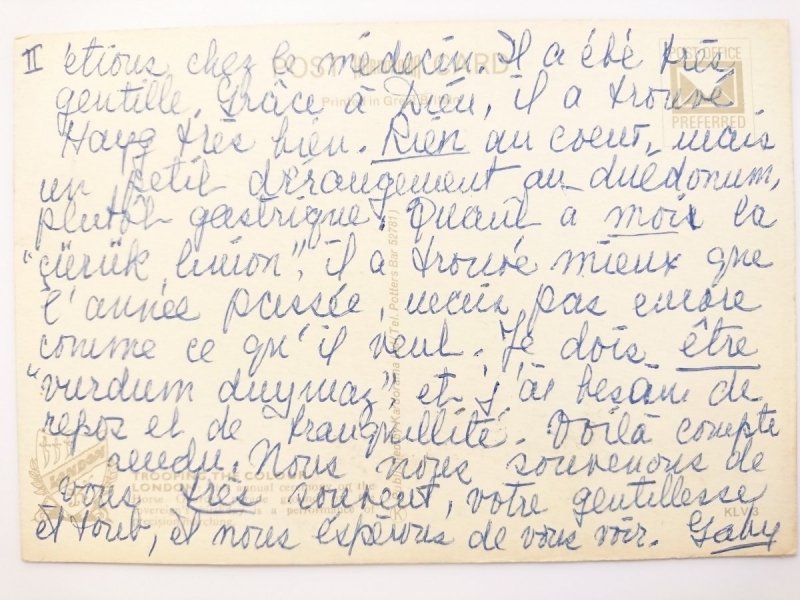 II étions chez le médecin. Il a été très
gentille. Grâce à Dieu, il a trouvé
Hayg très bien. Rien au coeur, mais
un petit dérangement au duedonum,
plutôt gastrique. Quant a moix la
"çürük limon", il a trouvé mieux que
l'année passée, mais pas encore
comme ce qu'il veut. Je dois être
"vurdum duymaz", et j'ai besoin de
repos et de tranquillité. Voilà compte
rendu. Nous nous souvenons de
vous très souvent, votre gentillesse
et tout, et nous espérons de vous voir. Gaby
POST CARD
Printed in Great Britain
POST OFFICE
PREFERRED
Tel. Potters Bar 52781)
LONDON
TROOPING THE COLOUR
LONDON
KLV 3